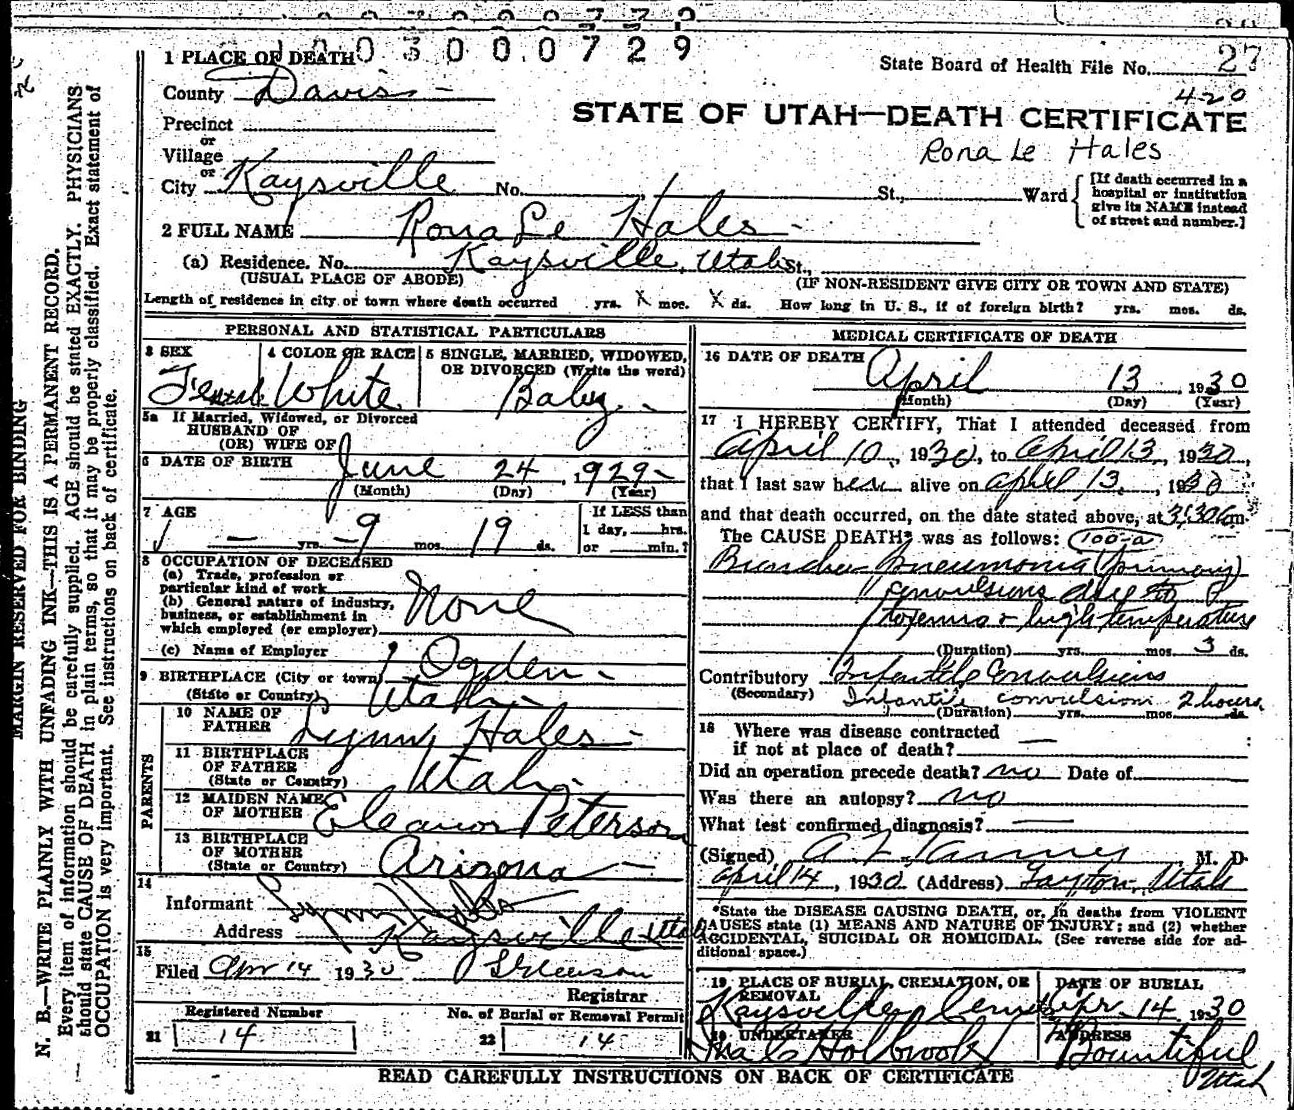 1003000729
1 PLACE OF DEATH
State Board of Health File No. 27
County Davis
420
STATE OF UTAH—DEATH CERTIFICATE
Precinct
or
Rona Le Hales
Village
or
City Kaysville No. St., Ward
[If death occurred in a hospital or institution give its NAME instead of street and number.]
2 FULL NAME Rona Le Hales
(a) Residence. No. Kaysville, Utah St.,
(USUAL PLACE OF ABODE) (IF NON-RESIDENT GIVE CITY OR TOWN AND STATE)
Length of residence in city or town where death occurred yrs. X mos. X ds. How long in U. S., if of foreign birth? yrs. mos. ds.
PERSONAL AND STATISTICAL PARTICULARS
3 SEX 4 COLOR OR RACE 5 SINGLE, MARRIED, WIDOWED,
OR DIVORCED (Write the word)
Female White Baby
5a If Married, Widowed, or Divorced
HUSBAND OF
(OR) WIFE OF
6 DATE OF BIRTH June 24, 1929
(Month) (Day) (Year)
7 AGE If LESS than
— yrs. 9 mos. 19 ds. 1 day, hrs.
or min.?
8 OCCUPATION OF DECEASED
(a) Trade, profession or
particular kind of work
(b) General nature of industry,
business, or establishment in
which employed (or employer) None
(c) Name of Employer
9 BIRTHPLACE (City or town) Ogden
(State or Country) Utah
PARENTS
10 NAME OF
FATHER Lynn Hales
11 BIRTHPLACE
OF FATHER
(State or Country) Utah
12 MAIDEN NAME
OF MOTHER Eleanor Peterson
13 BIRTHPLACE
OF MOTHER
(State or Country) Arizona
14
Informant Lynn Hales
Address Kaysville Utah
15
Filed Apr 14 1930
Registrar
Registered Number No. of Burial or Removal Permit
21 14 22 14
MEDICAL CERTIFICATE OF DEATH
16 DATE OF DEATH April 13, 1930
(Month) (Day) (Year)
17 I HEREBY CERTIFY, That I attended deceased from
April 10, 1930, to April 13, 1930,
that I last saw her alive on April 13, 1930
and that death occurred, on the date stated above, at 3:30 m.
The CAUSE DEATH* was as follows: 100-a
Broncho Pneumonia (primary)
convulsions due to
toxemia & high temperature
(Duration) yrs. mos. 3 ds.
Contributory Infantile Convulsions
(Secondary) Infantile convulsion 2 hours
(Duration) yrs. mos. ds.
18 Where was disease contracted
if not at place of death? —
Did an operation precede death? no Date of
Was there an autopsy? no
What test confirmed diagnosis? —
(Signed) A. Z. Tanner M. D.
April 14, 1930 (Address) Layton, Utah
*State the DISEASE CAUSING DEATH, or, in deaths from VIOLENT
CAUSES state (1) MEANS AND NATURE OF INJURY; and (2) whether
ACCIDENTAL, SUICIDAL OR HOMICIDAL. (See reverse side for ad-
ditional space.)
19 PLACE OF BURIAL, CREMATION, OR
REMOVAL
DATE OF BURIAL
Kaysville Cemt Apr. 14 1930
20 UNDERTAKER ADDRESS
Holbrook Bountiful
Utah
READ CAREFULLY INSTRUCTIONS ON BACK OF CERTIFICATE
MARGIN RESERVED FOR BINDING
N. B.—WRITE PLAINLY WITH UNFADING INK—THIS IS A PERMANENT RECORD.
Every item of information should be carefully supplied. AGE should be stated EXACTLY. PHYSICIANS
should state CAUSE OF DEATH in plain terms, so that it may be properly classified. Exact statement of
OCCUPATION is very important. See instructions on back of certificate.